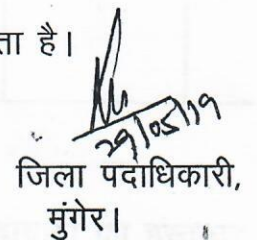 ता है।
29/05/19
जिला पदाधिकारी,
मुंगेर।